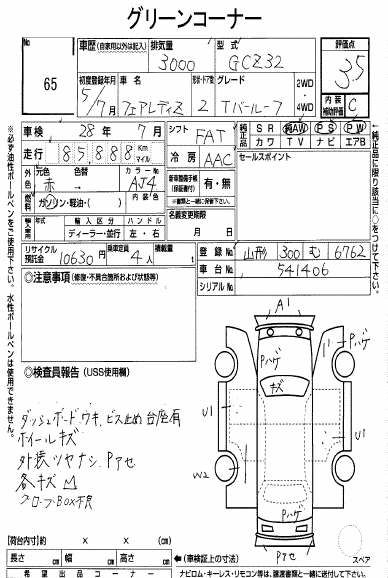 グリーンコーナー
No
65
車歴 (自家用以外は記入)
排気量
3000
型式
GCZ32
評価点
3.5
初度登録年月
5/7月
車名
フェアレディZ
形状・ドア数
2
グレード
Tバールーフ
2WD
4WD
内装
補助評価
C
車検
28年 7月
走行
85,888
Km
マイル
シフト
FAT
冷房
AAC
純正品
SR
純AW
PS
PW
カワ
TV
ナビ
エアB
セールスポイント
外色
元色
赤
色替
→
カラーNo
AJ4
燃料
ガソリン・軽油・( )
内装色
新車時関係手帳
(保証書付)
有・無
※書類と一緒に保管下さい。
輸入車
年式
輸入区分
ハンドル
ディーラー・並行
左・右
名義変更期限
月 日
リサイクル
預託金
10630円
乗車定員
4人
積載量
登録No
山形 300 む 6762
車台No
541406
シリアルNo
◎注意事項(修復・不具合箇所および状態等)
◎検査員報告(USS使用欄)
ダッシュボードウキ、ビス止め台座有
ホイールキズ
外装ツヤナシ、Pアセ
各キズ凹
グローブBOX不良
A1
Pハゲ
Pハゲ
キズ
U1
U1
W2
Pハゲ
Pアセ
スペア
※必ず油性ボールペンをご使用下さい。水性ボールペンは使用できません。
純正品に限り該当に○をつけて下さい。
【荷台内寸】
× × (cm)
長さ cm
幅 cm
高さ cm
◀(車検証上の寸法)
希望出品コーナー
ナビロム・キーレス・リモコン等は、譲渡書類と一緒に送付して下さい。